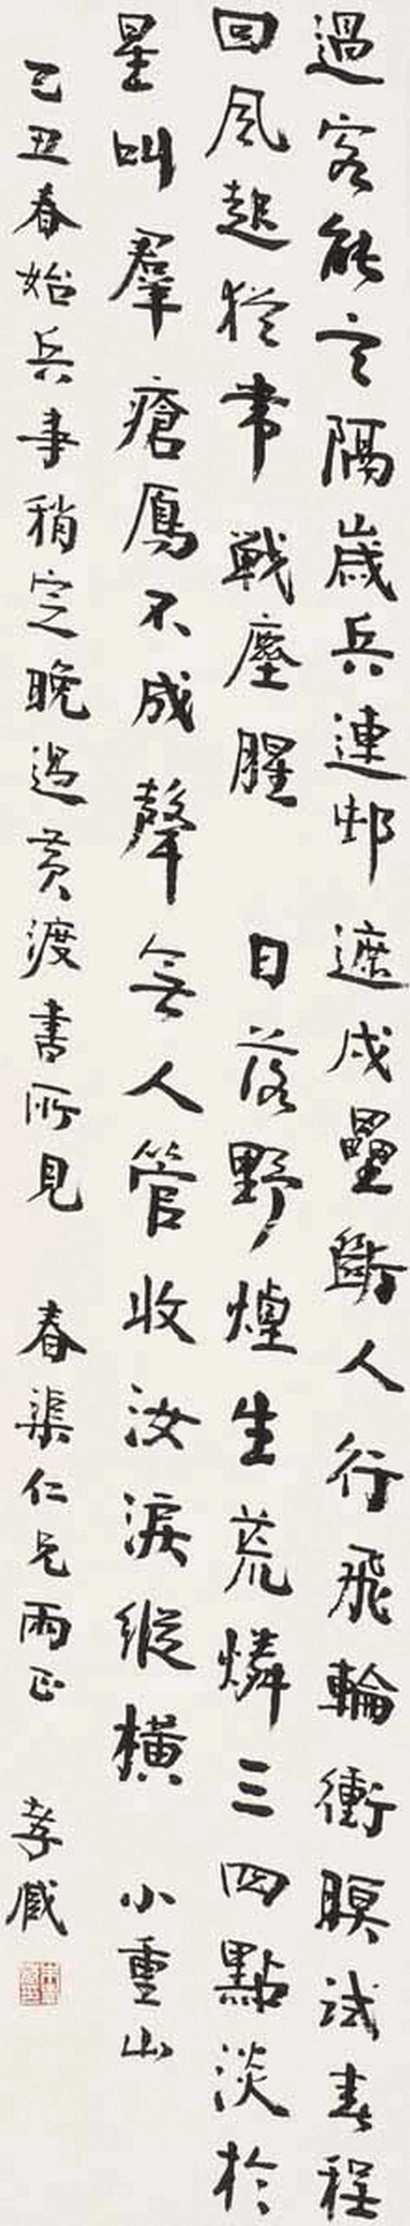 過客能言隔歲兵連邨遮戍壘斷人行飛輪衝瞑試春程
回風起猶帶戰塵腥 日落野煙生荒燐三四點淡於
星叫羣瘡鴈不成聲無人管收汝淚縱橫 小重山
乙丑春始兵事稍定晚過黃渡書所見 春渠仁兄兩正 孝臧